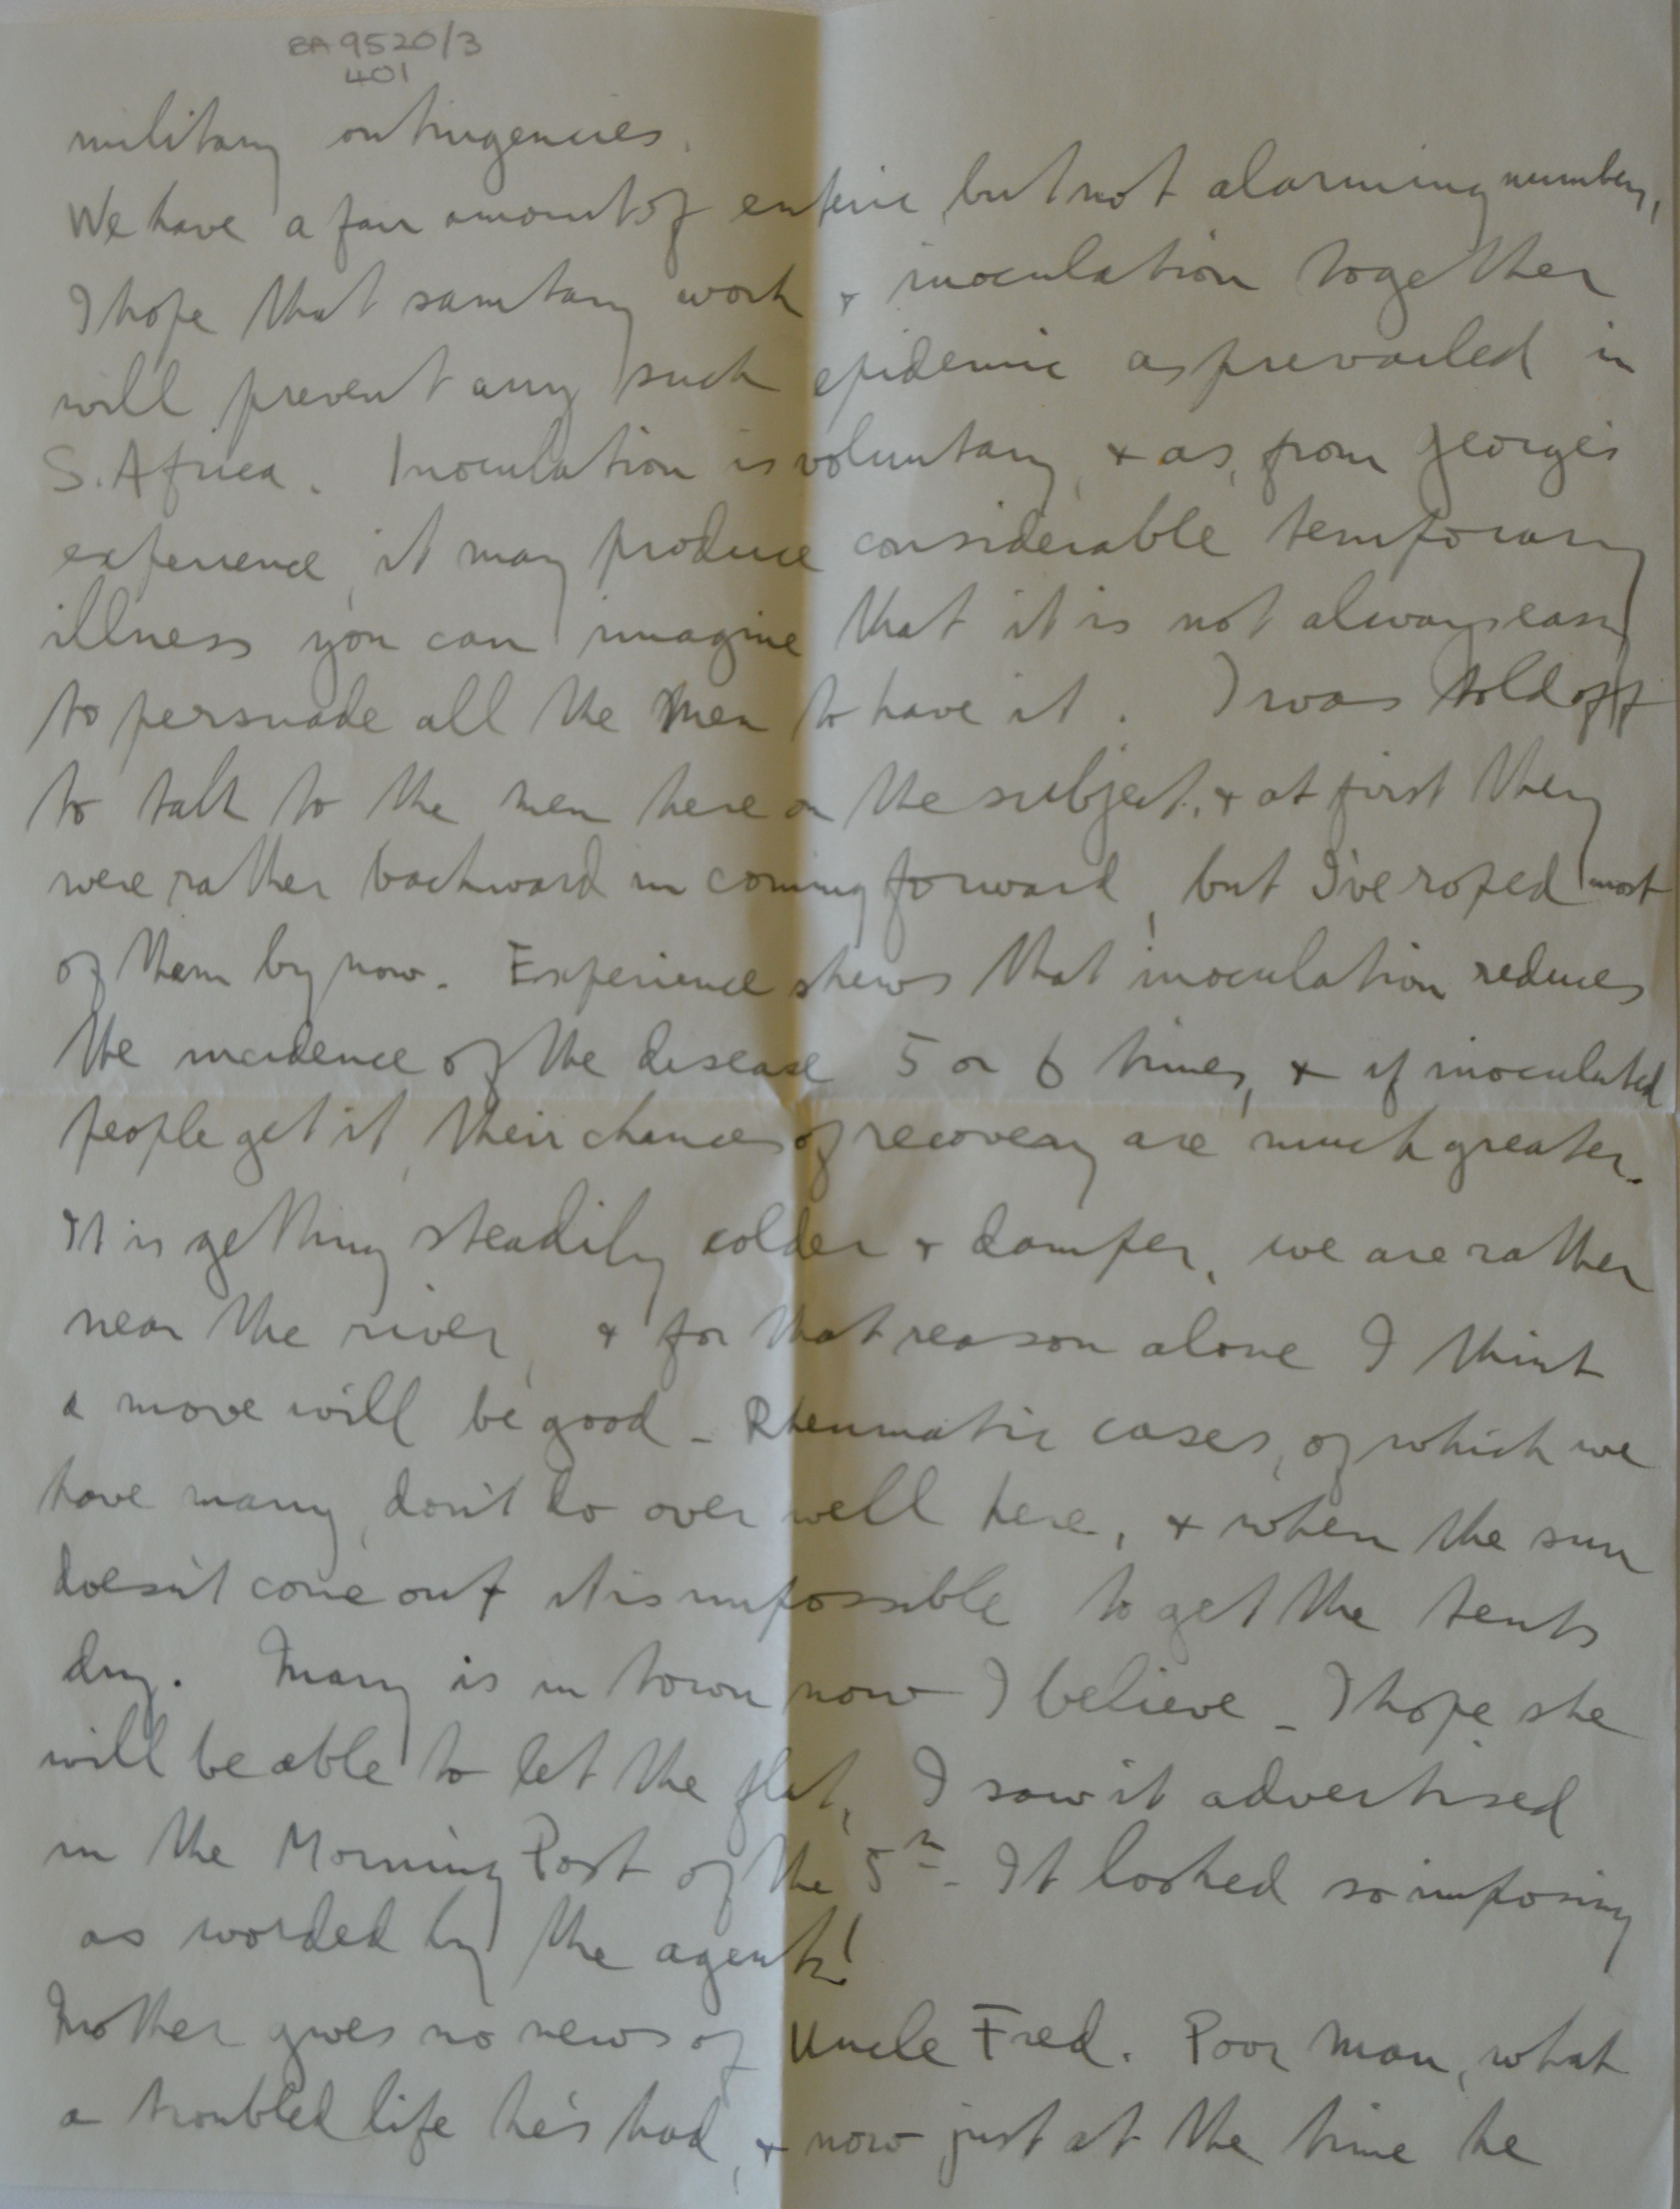 BA 9520/3
401
military ontingencies.
We have a fair amount of enteric, but not alarming numbers,
I hope that sanitary work & inoculation together
will prevent any such epidemic as prevailed in
S. Africa. Inoculation is voluntary, & as, from George's
experience, it may produce considerable temporary
illness you can imagine that it is not always easy
to persuade all the men to have it. I was told off
to talk to the men here on the subject, & at first they
were rather backward in coming forward, but I've roped most
of them by now. Experience shews that inoculation reduces
the incidence of the disease 5 or 6 times, & if inoculated
people get it, their chances of recovery are much greater.
It is getting steadily colder & damper, we are rather
near the river, & for that reason alone I think
a move will be good - Rheumatic cases, of which we
have many, don't do over well here, & when the sun
doesn't come out it is impossible to get the tents
dry. Mary is in town now I believe - I hope she
will be able to let the flat, I saw it advertised
in the Morning Post of the 5th - It looked so imposing
as worded by the agents!
Mother gives no news of Uncle Fred. Poor man, what
a troubled life he's had, & now just at the time he